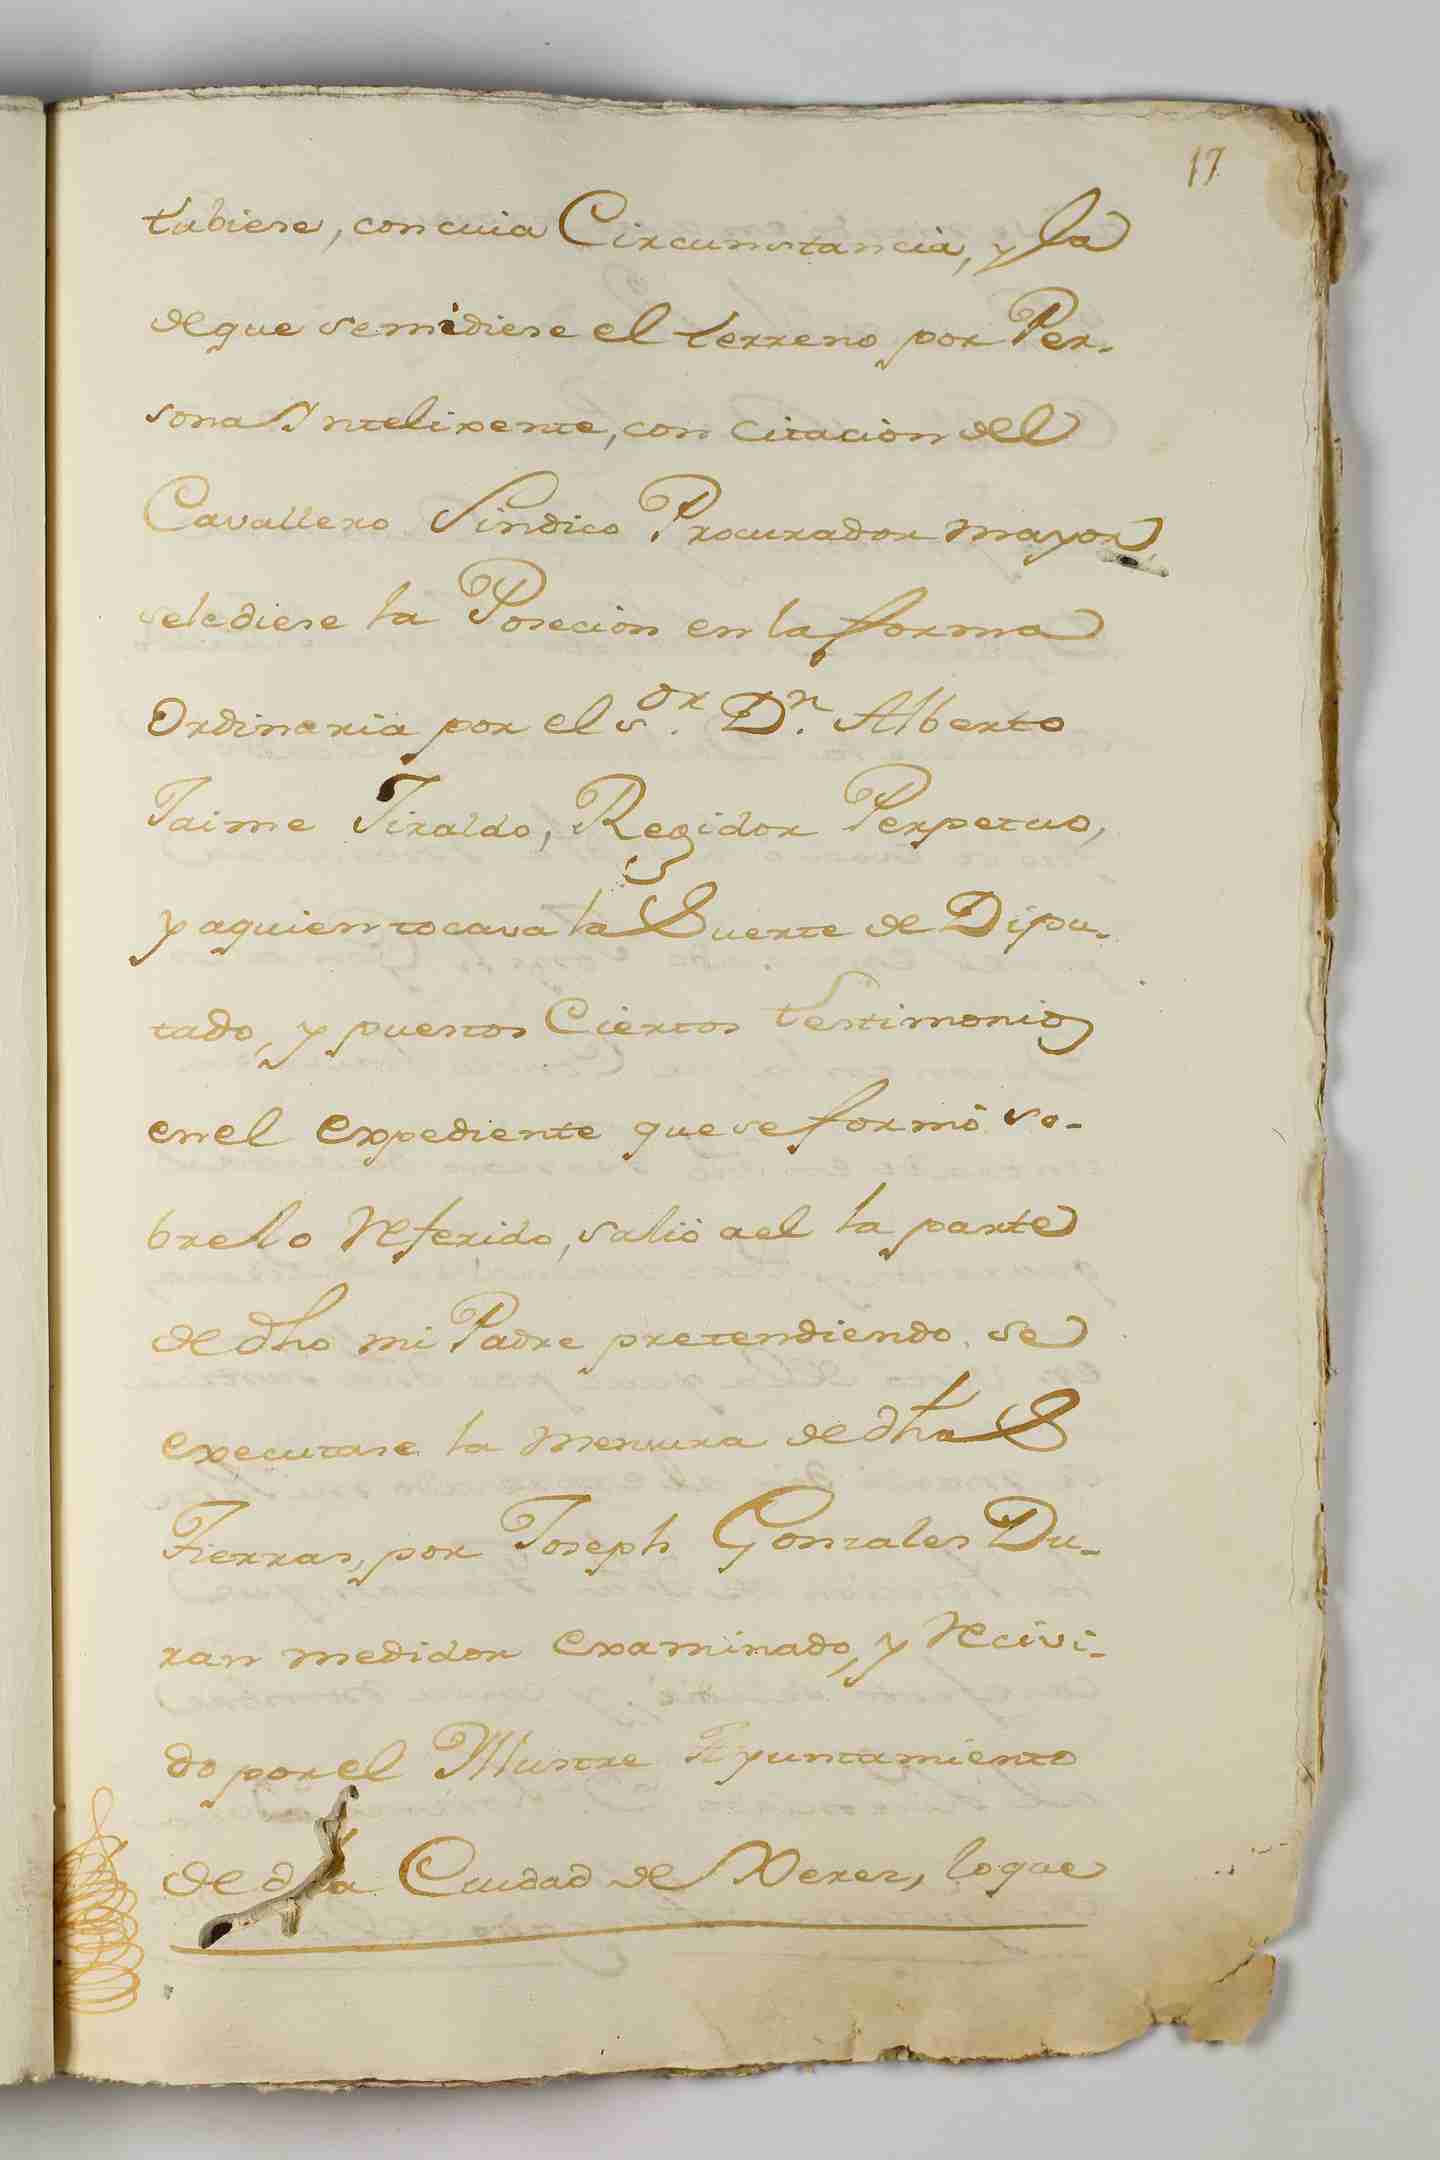 17
tubiese, con cuia Circunstancia, y la
de que se midiese el terreno por Per-
sona Intelixente, con citacion del
Cavallero Sindico Procurador mayor
se le diese la Posecion en la forma
Ordinaria por el S.or D.n Alberto
Jaime Jiraldo, Regidor Perpetuo,
y a quien tocava la Suerte de Dipu-
tado, y puestos Ciertos testimonios
en el expediente que se formó so-
bre lo Referido, salió a el la parte
de dho mi Padre pretendiendo se
executase la mensura de dhas
Tierras, por Joseph Gonzales Du-
ran medidor examinado, y Recivi-
do por el Yllustre Ayuntamiento
de dha Ciudad de Xerez, lo que